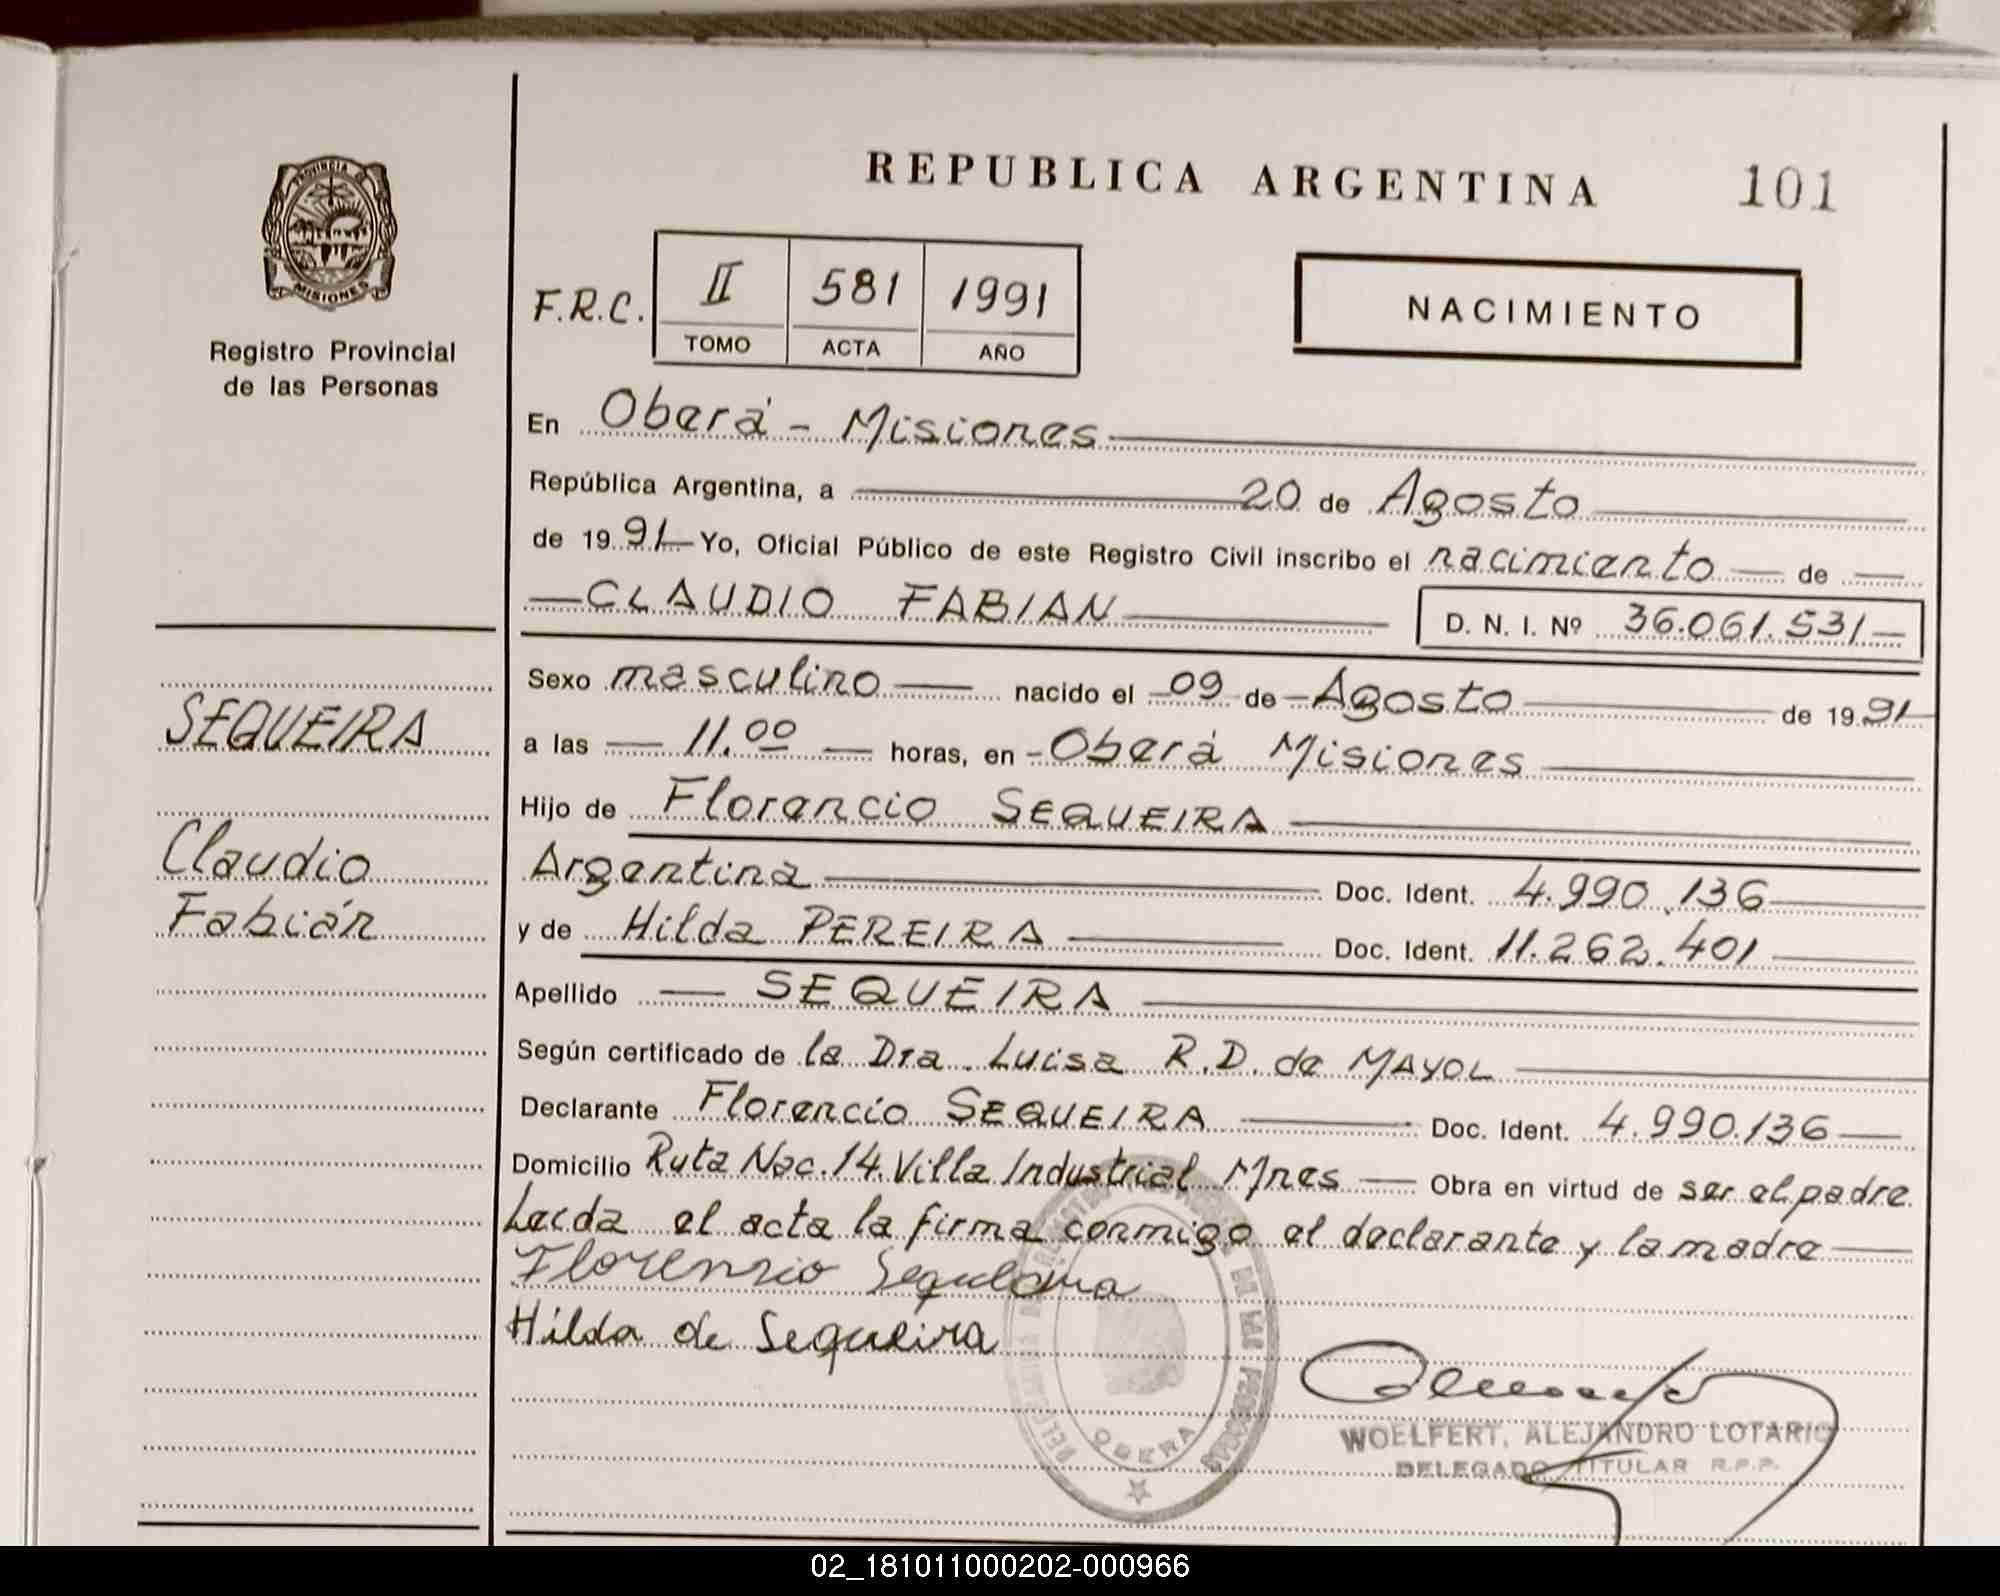 REPUBLICA ARGENTINA 101
PROVINCIA DE
MISIONES
Registro Provincial
de las Personas
F.R.C. II 581 1991
TOMO ACTA AÑO
NACIMIENTO
En Oberá - Misiones
República Argentina, a 20 de Agosto
de 1991 Yo, Oficial Público de este Registro Civil inscribo el nacimiento de
CLAUDIO FABIAN D. N. I. Nº 36.061.531
Sexo masculino nacido el 09 de Agosto de 1991
a las 11.00 horas, en Oberá Misiones
Hijo de Florencio SEQUEIRA
Argentina Doc. Ident. 4.990.136
y de Hilda PEREIRA Doc. Ident. 11.262.401
Apellido SEQUEIRA
Según certificado de la Dra. Luisa R.D. de MAYOL
Declarante Florencio SEQUEIRA Doc. Ident. 4.990.136
Domicilio Ruta Nac. 14. Villa Industrial Mnes Obra en virtud de ser el padre.
Leída el acta la firma conmigo el declarante y la madre
Florensio Sequeira
Hilda de Sequeira
SEQUEIRA
Claudio
Fabián
DE LAS PERSONAS
OBERA
WOELFERT, ALEJANDRO LOTARIO
DELEGADO TITULAR R.P.P.
02_181011000202-000966